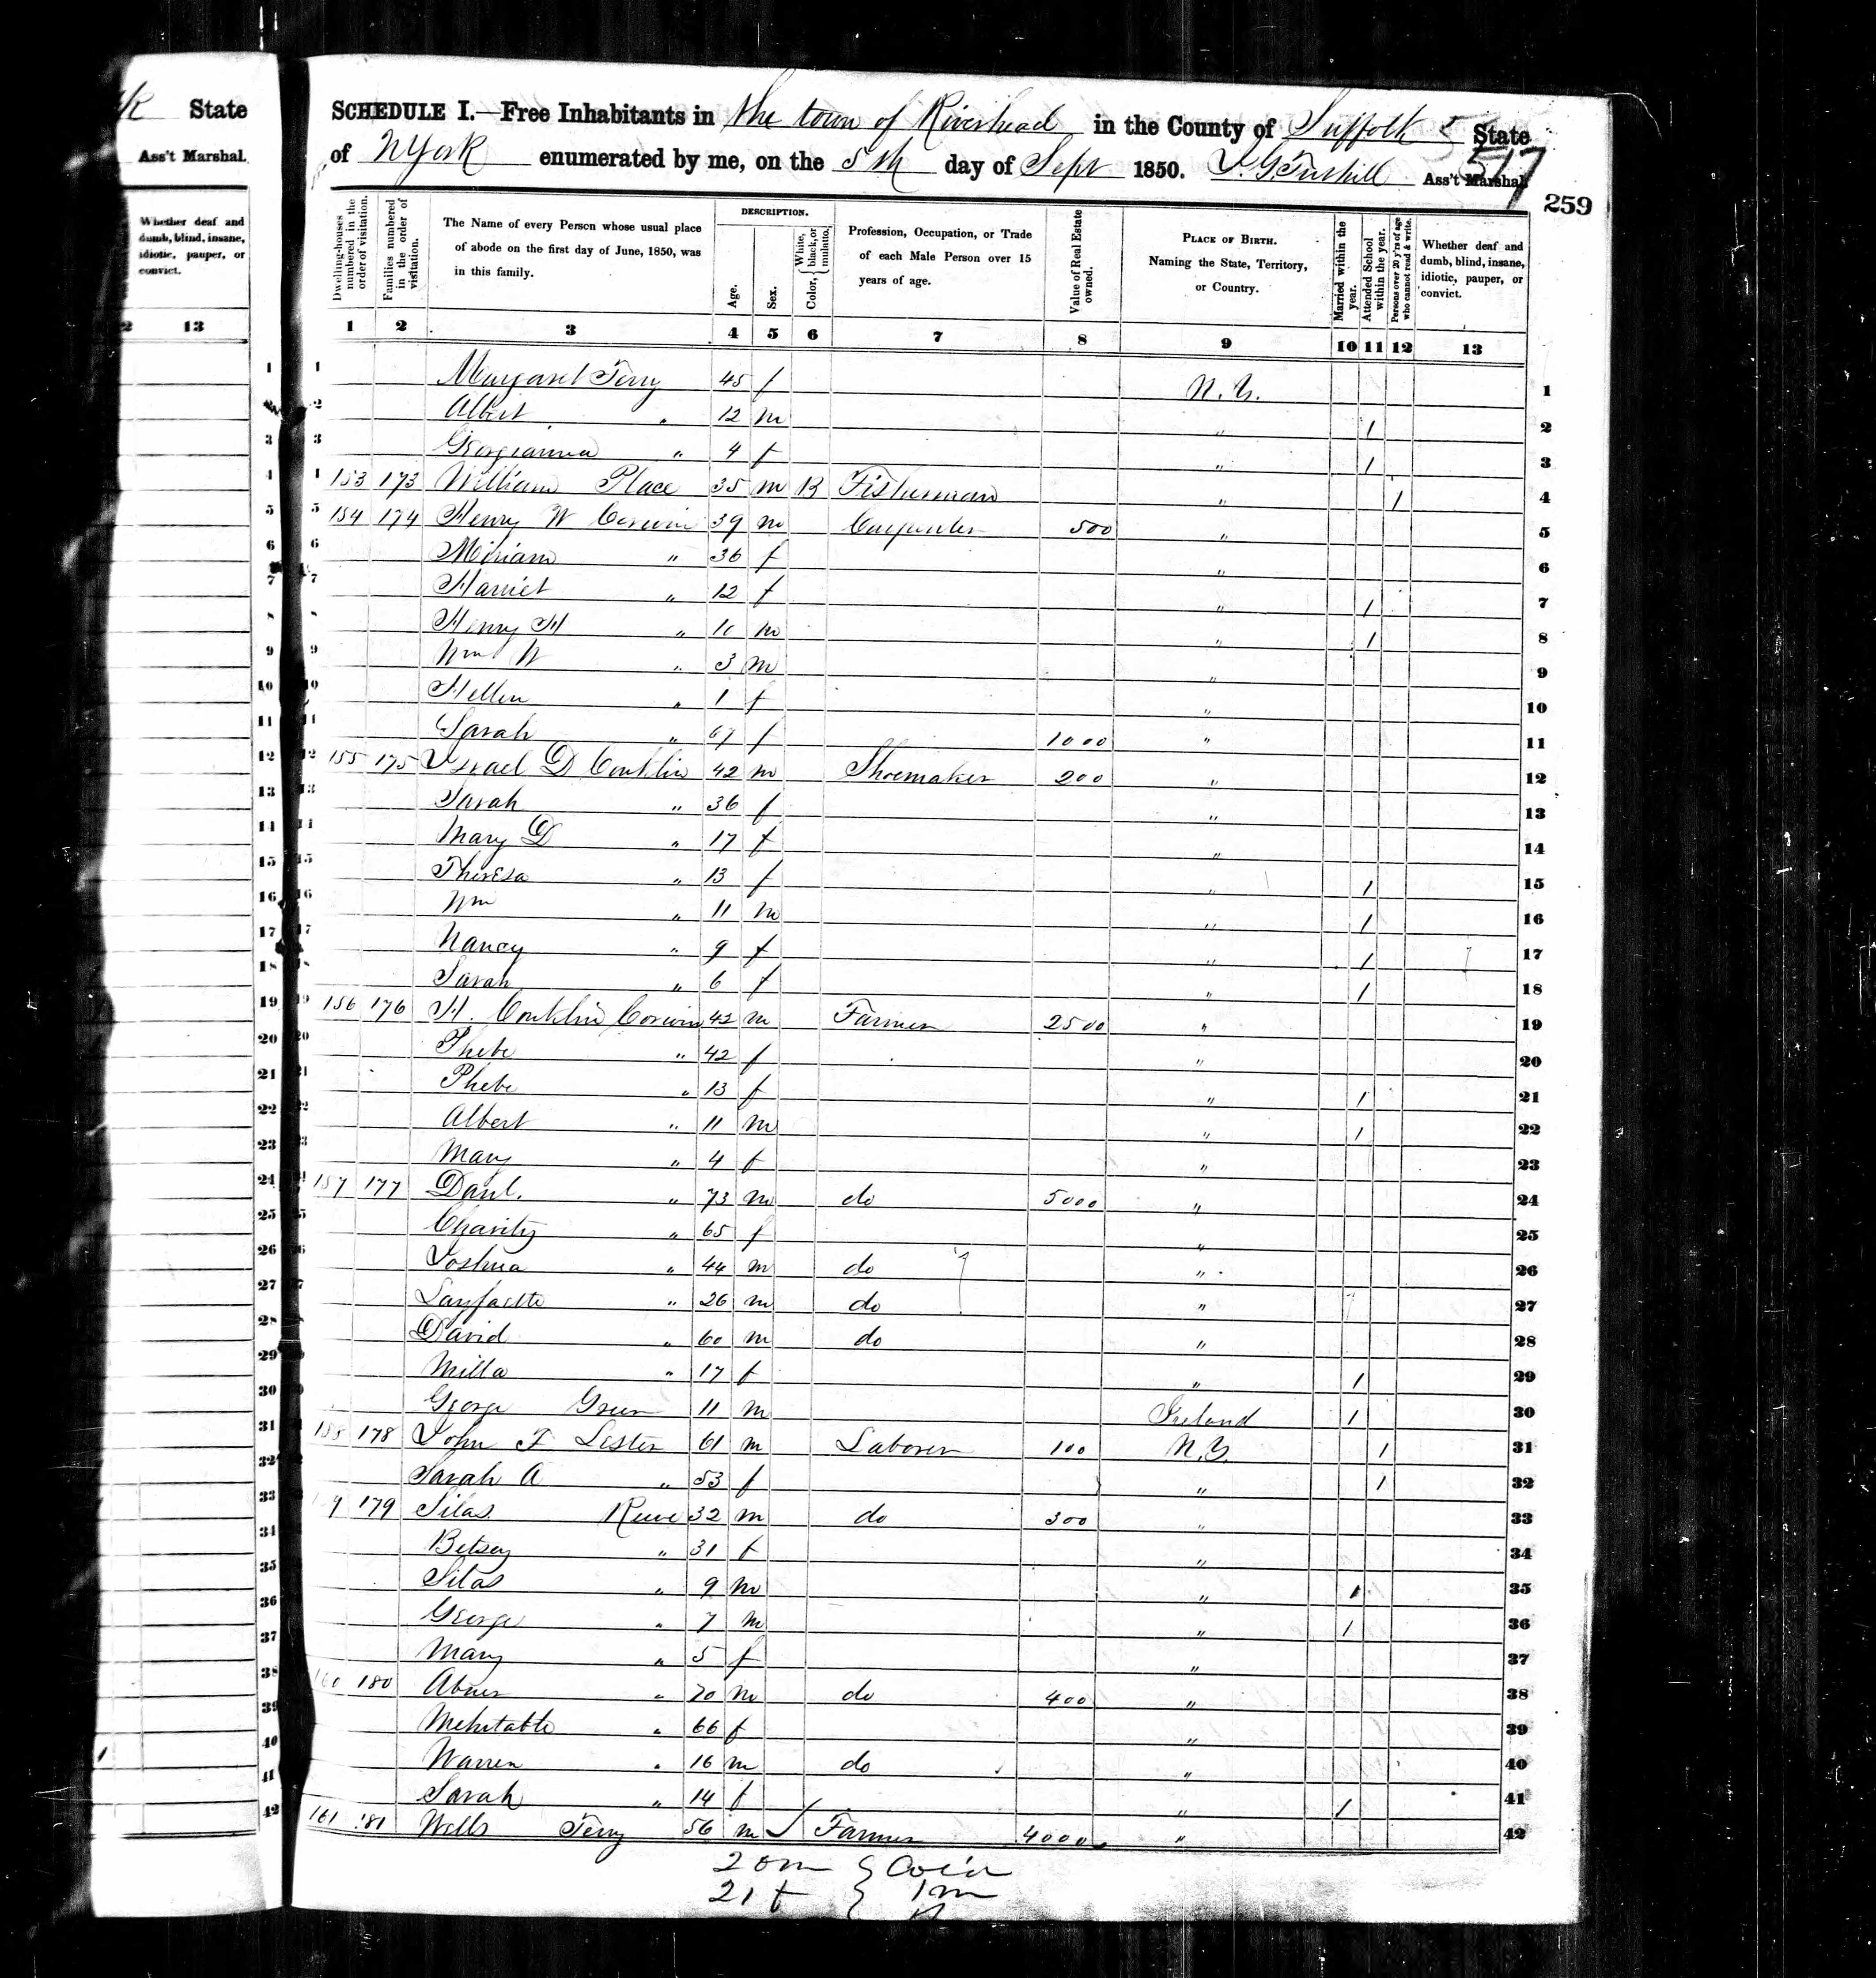 k State
Ass't Marshal.
Whether deaf and
dumb, blind, insane,
idiotic, pauper, or
convict.
2 13
SCHEDULE I.—Free Inhabitants in the town of Riverhead in the County of Suffolk State
of NYork enumerated by me, on the 5th day of Sept 1850. Ass't Marshal.
517
259
Dwelling-houses numbered in the order of visitation.
Families numbered in the order of visitation.
The Name of every Person whose usual place of abode on the first day of June, 1850, was in this family.
DESCRIPTION.
Age.
Sex.
Color, { White, black, or mulatto.
Profession, Occupation, or Trade of each Male Person over 15 years of age.
Value of Real Estate owned.
PLACE OF BIRTH. Naming the State, Territory, or Country.
Married within the year.
Attended School within the year.
Persons over 20 y'rs of age who cannot read & write.
Whether deaf and dumb, blind, insane, idiotic, pauper, or convict.
1 2 3 4 5 6 7 8 9 10 11 12 13
1 Margaret Terry 45 f N.Y. 1
2 Albert " 12 m " 1 2
3 Georgianna " 4 f " 1 3
4 153 173 William Place 35 m B Fisherman " 1 4
5 154 174 Henry W Corwin 39 m Carpenter 500 " 5
6 Miriam " 36 f " 6
7 Harriet " 12 f " 1 7
8 Henry H " 10 m " 1 8
9 Wm W " 3 m " 9
10 Hellen " 1 f " 10
11 Sarah " 67 f 1000 " 11
12 155 175 Israel D Conklin 42 m Shoemaker 200 " 12
13 Sarah " 36 f " 13
14 Mary D " 17 f " 14
15 Theresa " 13 f " 1 15
16 Wm " 11 m " 1 16
17 Nancy " 9 f " 1 17
18 Sarah " 6 f " 1 18
19 156 176 H. Conklin Corwin 42 m Farmer 2500 " 19
20 Phebe " 42 f " 20
21 Phebe " 13 f " 1 21
22 Albert " 11 m " 1 22
23 Mary " 4 f " 23
24 157 177 Danl. " 73 m do 5000 " 24
25 Charity " 65 f " 25
26 Joshua " 44 m do " 26
27 Layfaette " 26 m do " 27
28 David " 60 m do " 28
29 Milla " 17 f " 1 29
30 George Green 11 m Ireland 1 30
31 158 178 John T Lester 61 m Laborer 100 N.Y. 1 31
32 Sarah A " 53 f " 1 32
33 9 179 Silas Reeve 32 m do 300 " 33
34 Betsey " 31 f " 34
35 Silas " 9 m " 1 35
36 George " 7 m " 1 36
37 Mary " 5 f " 37
38 60 180 Abner " 70 m do 400 " 38
39 Mehitable " 66 f " 39
40 Warren " 16 m do " 40
41 Sarah " 14 f " 1 41
42 161 181 Wells Terry 56 m Farmer 4000 " 42
20 m } Col'd
21 f } 1 m